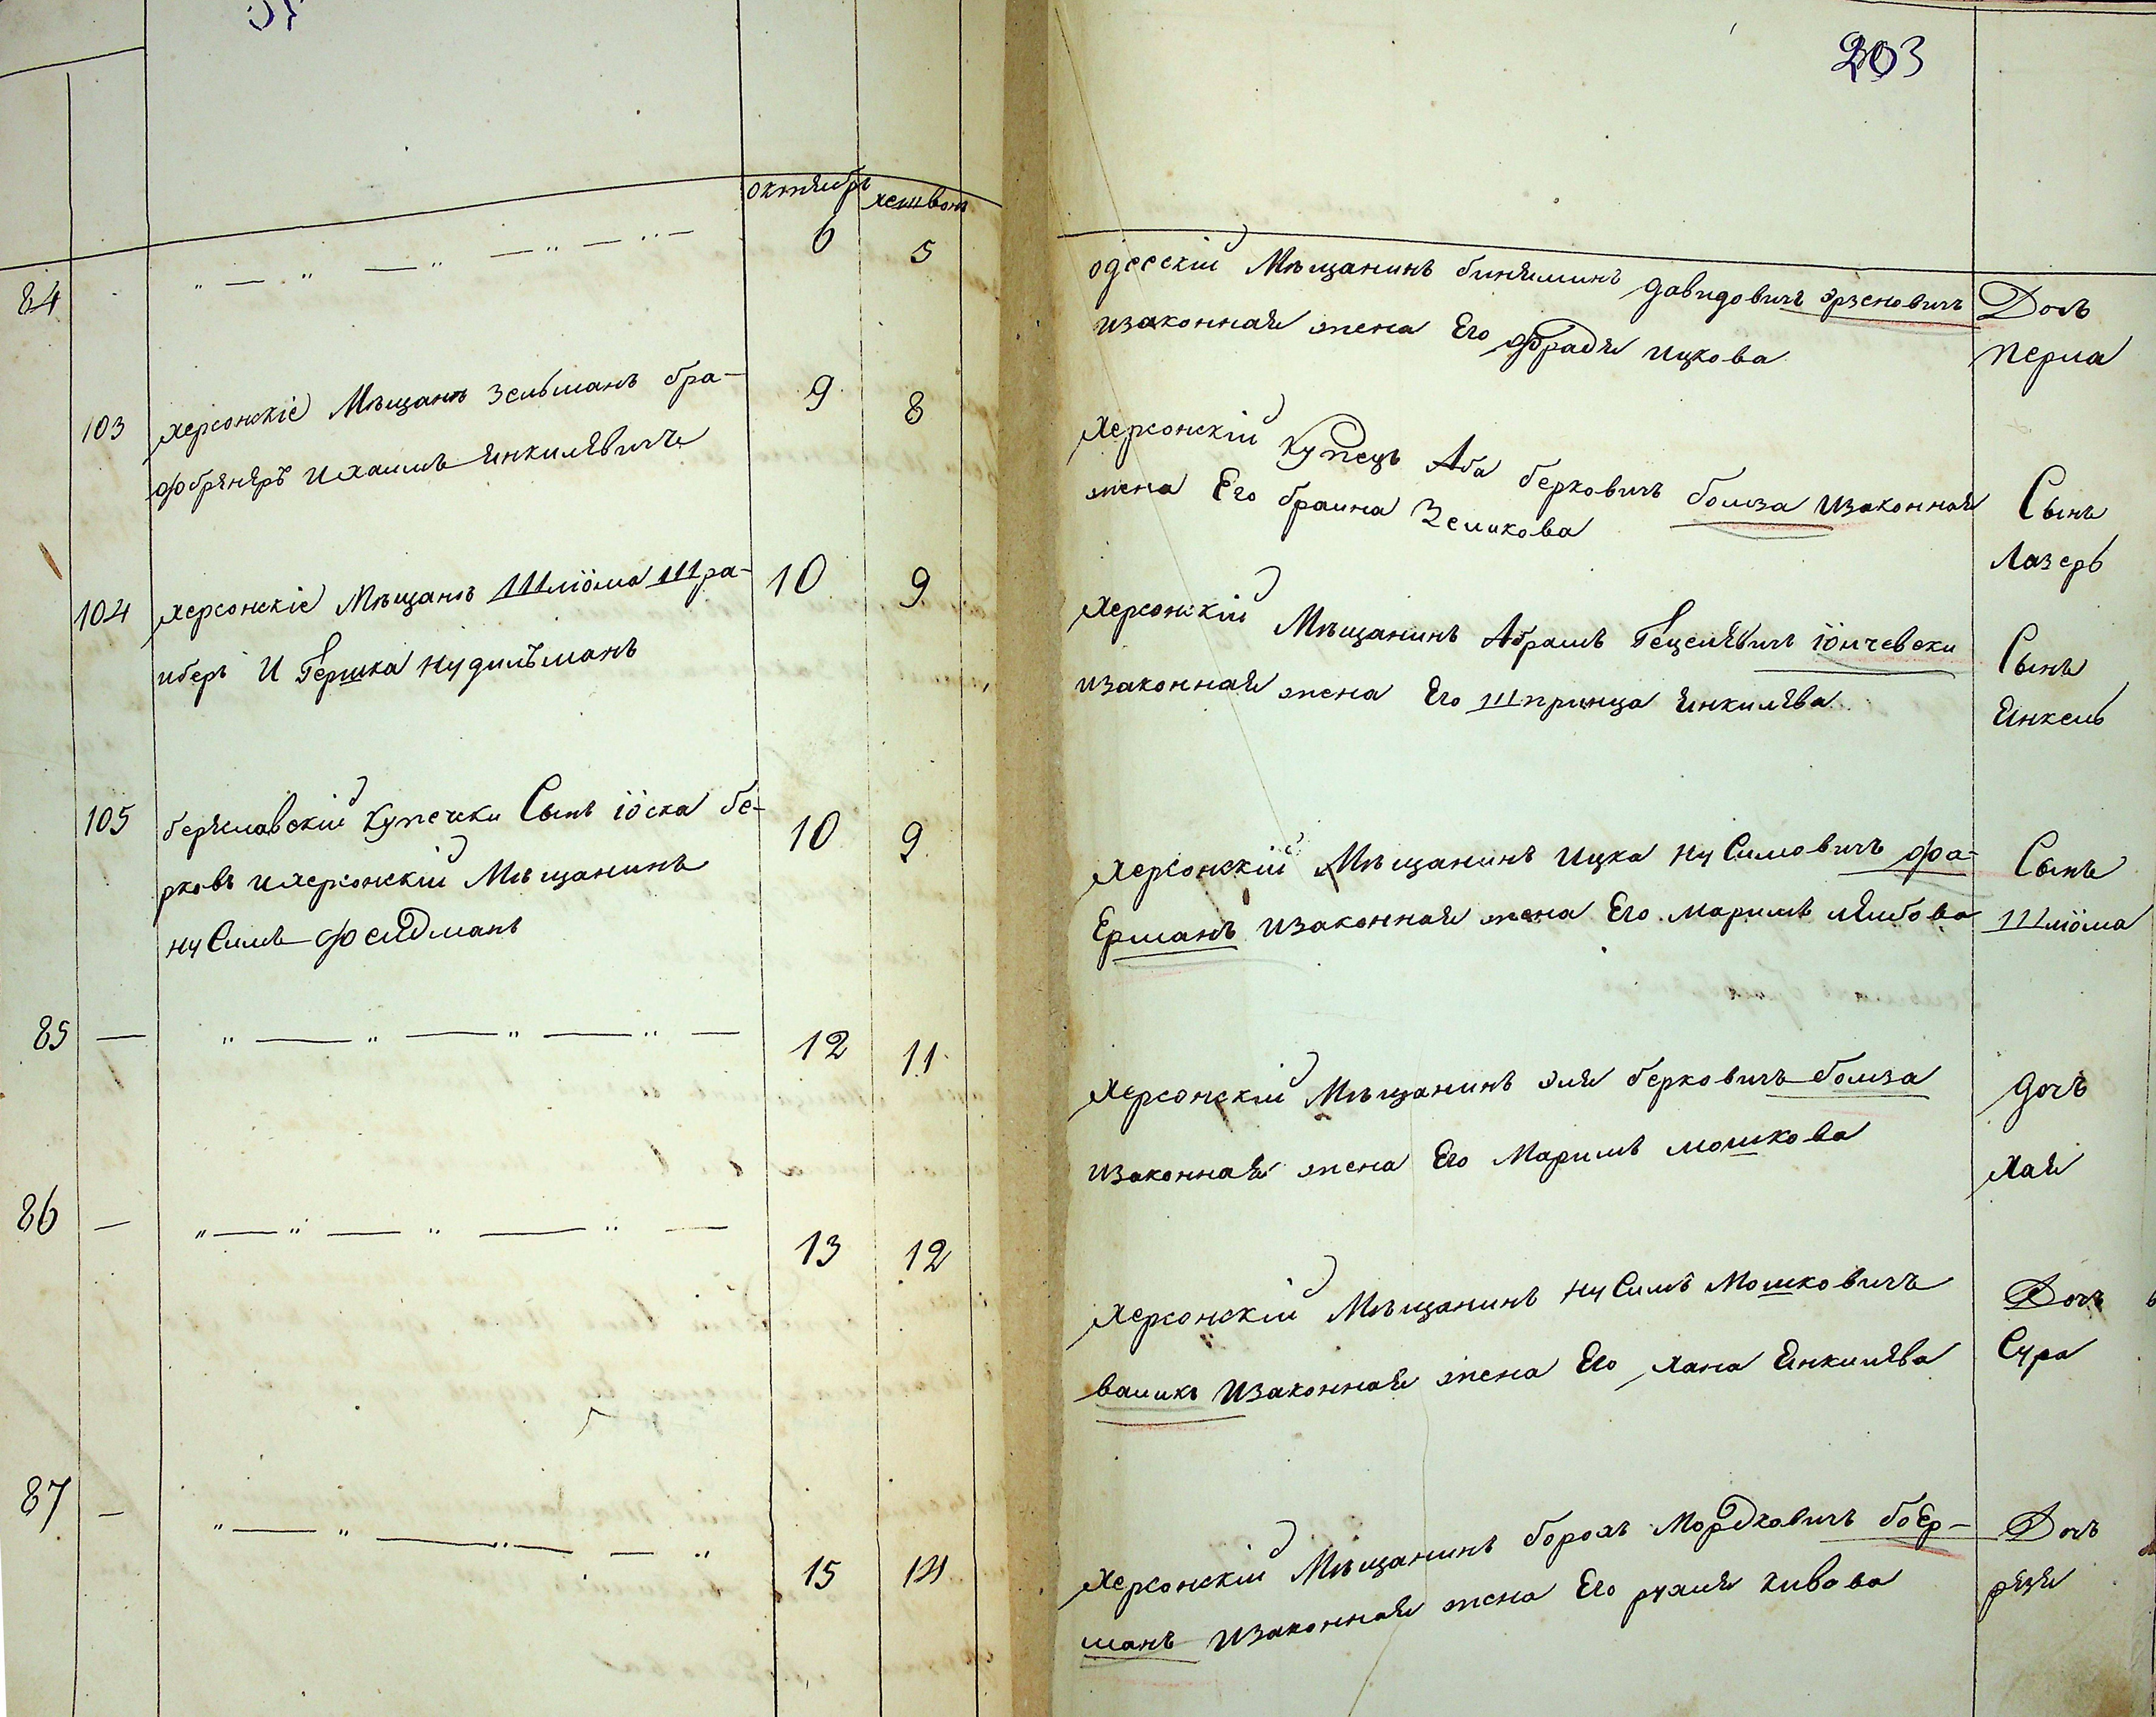 203
октябрь хешвонъ
84 " — " — " — " — 6 5
одесскій Мѣщанинъ биняминъ давидовичъ эрзеновичъ Дочь
изаконная жена Его фрадя ицкова перла
103 херсонскіе Мѣщанъ зельманъ бра- 9 8
херсонскій Купецъ Аба берковичъ болза изаконная Сынъ
жена Его браина Зеликова Лазерь
104 херсонскіе Мѣщанъ Шлiома Шра- 10 9
иберъ И Гершка Нудильманъ
херсонскій Мѣщанинъ Абрамъ Гецелѣвичъ iончевски Сынъ
изаконная жена Его Шпринца Янкилѣва Янкель
105 береславскій Купечки Сынъ iоска бе- 10 9
рковъ ихерсонскій Мѣщанинъ
нуСимъ фелдманъ
херсонскій Мѣщанинъ Ицка НуСимовичъ фа- Сынъ
Ерманъ изаконная жена Его маримъ лейбова Шлiома
85 — " — " — " — " — 12 11
херсонскій Мѣщанинъ эля берковичъ болза дочь
изаконная жена Его Маримъ мошкова хая
86 — " — " — " — " — 13 12
херсонскій Мѣщанинъ НуСимъ Мошковичъ Дочь
валикъ изаконная жена Его хана Янкилѣва Сура
87 — " — " — " — — " 15 14
херсонскій Мѣщанинъ борохъ Мордковичъ боЕр- Дочь
манъ изаконная жена Его рухля кивова рейзя